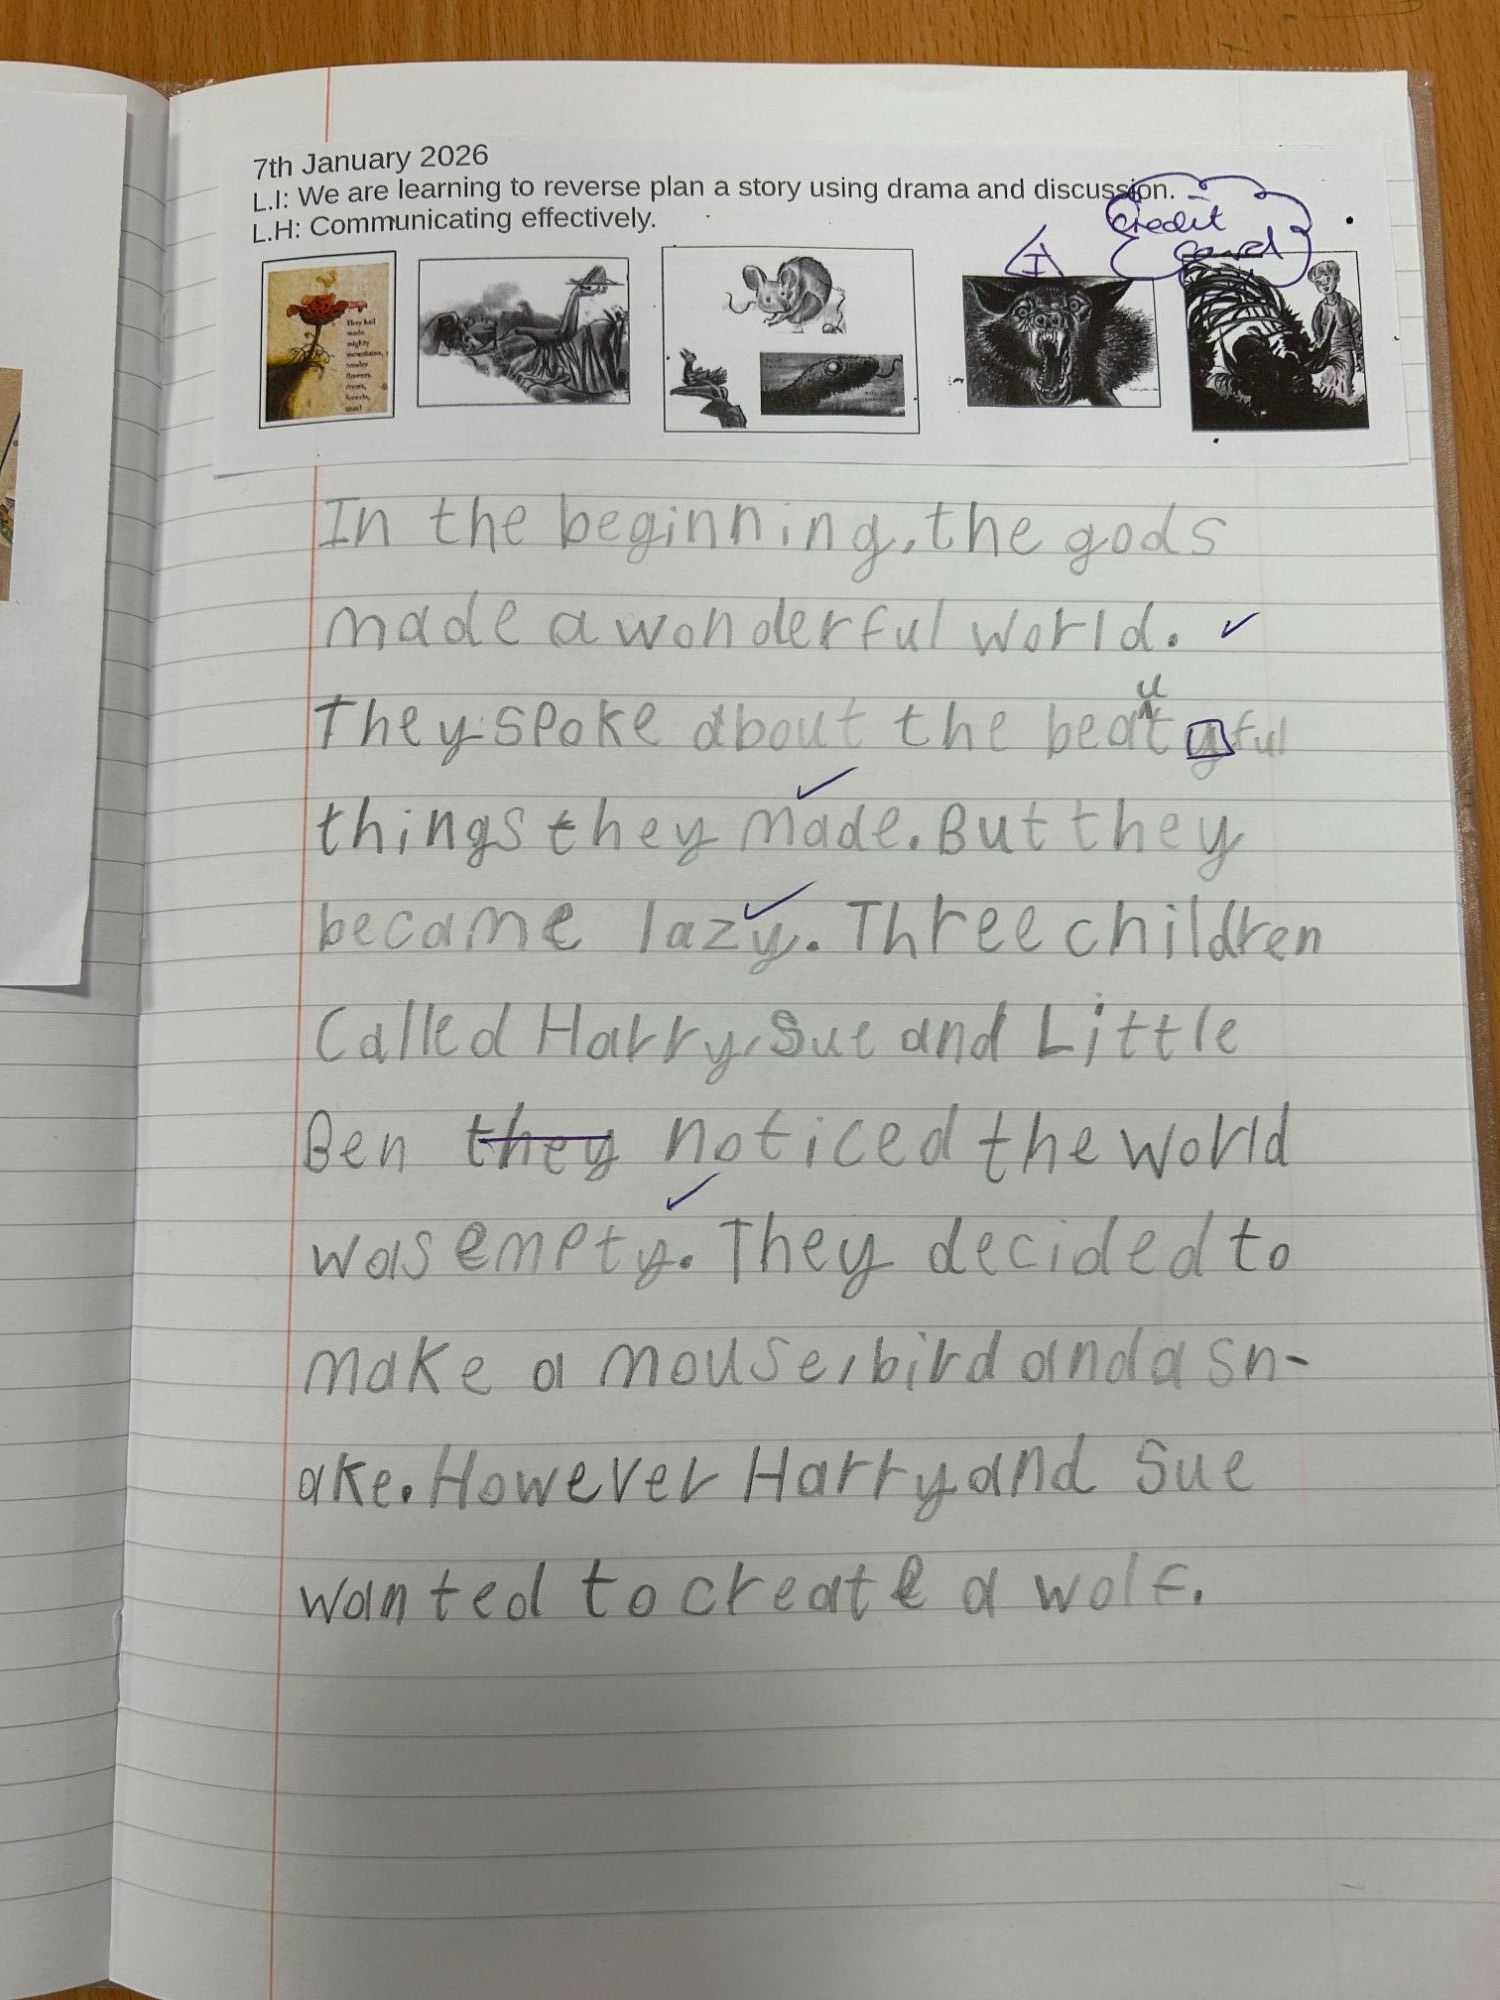 7th January 2026
L.I: We are learning to reverse plan a story using drama and discussion.
L.H: Communicating effectively.
credit
card
I
They had
made
mighty
mountains,
tender
flowers,
rivers,
forests,
seas!
In the beginning, the gods
made a wonderful world.
u
They spoke about the beatyful
things they made. But they
became lazy. Three children
Called Harry, Sue and Little
Ben they noticed the world
was empty. They decided to
make a mouse, bird and a sn-
ake. However Harry and Sue
wanted to create a wolf.